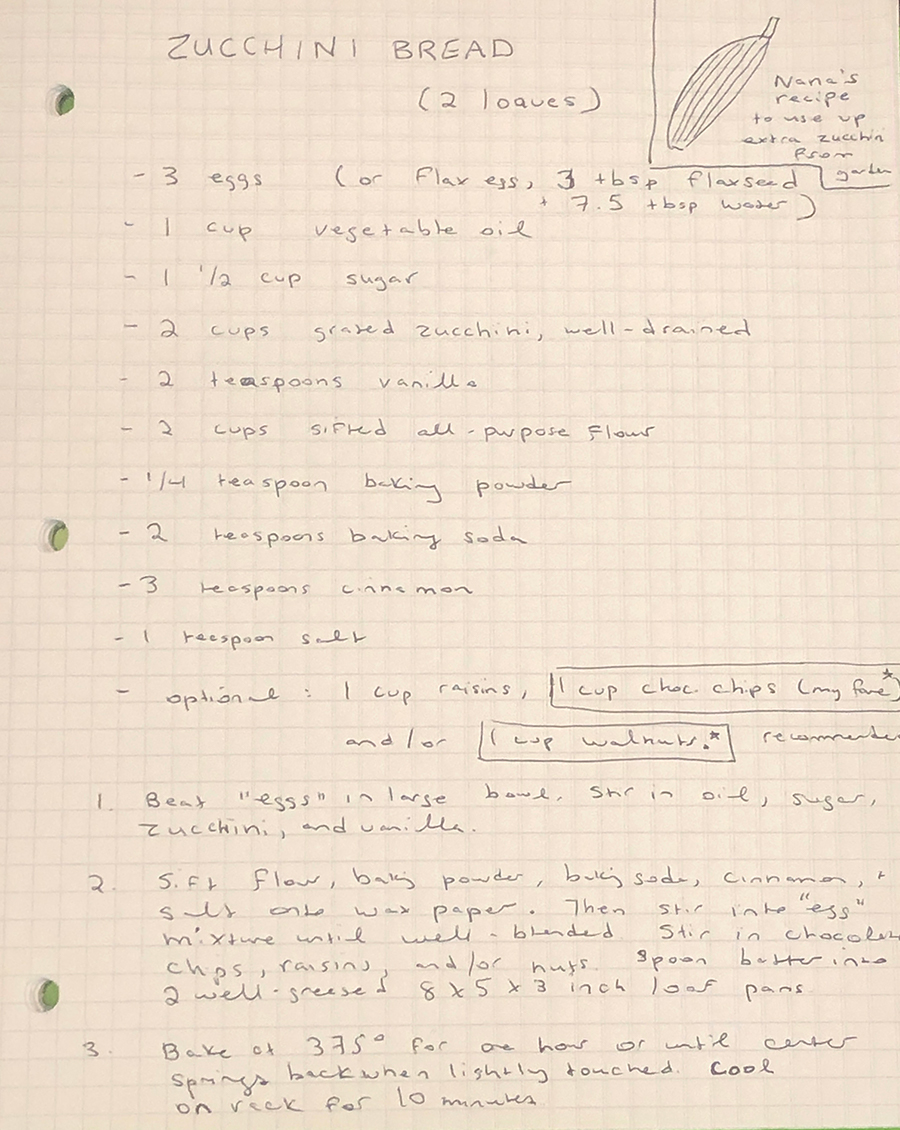 ZUCCHINI BREAD
(2 loaves)
Nana's
recipe
to use up
extra zucchin
from
garden
- 3 eggs (or flax egg, 3 tbsp flaxseed
+ 7.5 tbsp water)
- 1 cup vegetable oil
- 1 1/2 cup sugar
- 2 cups grated zucchini, well-drained
- 2 teaspoons vanilla
- 2 cups sifted all-purpose flour
- 1/4 teaspoon baking powder
- 2 teaspoons baking soda
- 3 teaspoons cinnamon
- 1 teaspoon salt
- optional: 1 cup raisins, 1 cup choc. chips (my fave)*
and/or 1 cup walnuts.* recommende
1. Beat "eggs" in large bowl. Stir in oil, sugar,
zucchini, and vanilla.
2. Sift flour, baking powder, baking soda, cinnamon, +
salt onto wax paper. Then stir into "egg"
mixture until well-blended Stir in chocolate
chips, raisins, and/or nuts. Spoon batter into
2 well-greased 8 x 5 x 3 inch loaf pans
3. Bake at 375° for one hour or until center
springs back when lightly touched. Cool
on rack for 10 minutes